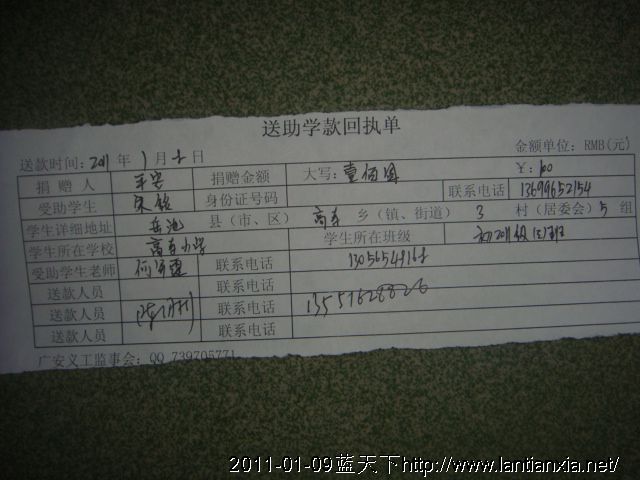 送助学款回执单
送款时间: 2011 年 1 月 日 金额单位: RMB(元)
捐赠人 平安 捐赠金额 大写: 壹佰圆 ¥: 100
受助学生 身份证号码 联系电话 13699652154
学生详细地址 岳池 县(市、区) 乡(镇、街道) 3 村(居委会) 5 组
学生所在学校 小学 学生所在班级 初2011级 班
受助学生老师 联系电话
送款人员 联系电话
送款人员 联系电话 13551628826
送款人员 联系电话
广安义工监事会: QQ 739705771
2011-01-09蓝天下http://www.lantianxia.net/